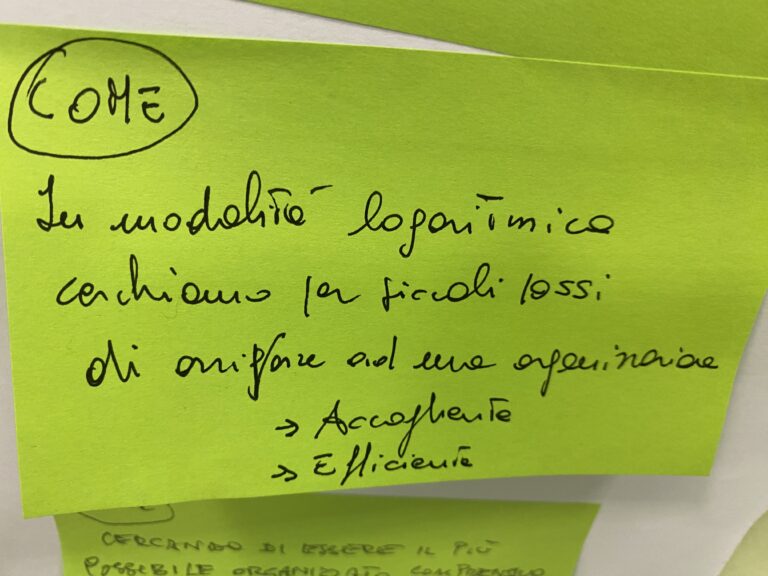 COME
In modalità logaritmica
cerchiamo per piccoli passi
di arrivare ad una organizzazione
→ Accogliente
→ Efficiente
CERCANDO DI ESSERE IL PIÙ
POSSIBILE ORGANIZZATO